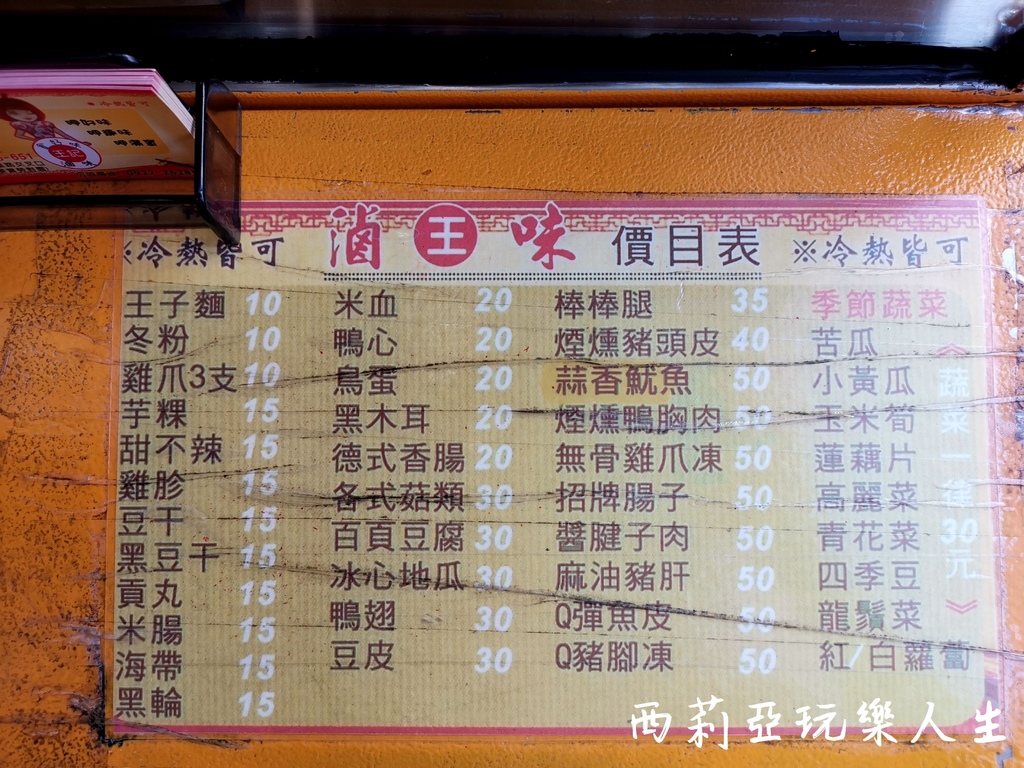 ※冷熱皆可
王
-651
※冷熱皆可 滷王味 價目表 ※冷熱皆可
王子麵 10
冬粉 10
雞爪3支 10
芋粿 15
甜不辣 15
雞胗 15
豆干 15
黑豆干 15
貢丸 15
米腸 15
海帶 15
黑輪 15
米血 20
鴨心 20
鳥蛋 20
黑木耳 20
德式香腸 20
各式菇類 30
百頁豆腐 30
冰心地瓜 30
鴨翅 30
豆皮 30
棒棒腿 35
煙燻豬頭皮 40
蒜香魷魚 50
煙燻鴨胸肉 50
無骨雞爪凍 50
招牌腸子 50
醬腱子肉 50
麻油豬肝 50
Q彈魚皮 50
Q豬腳凍 50
季節蔬菜
苦瓜
小黃瓜
玉米筍
蓮藕片
高麗菜
青花菜
四季豆
龍鬚菜
紅/白蘿蔔
《蔬菜一律30元》
西莉亞玩樂人生